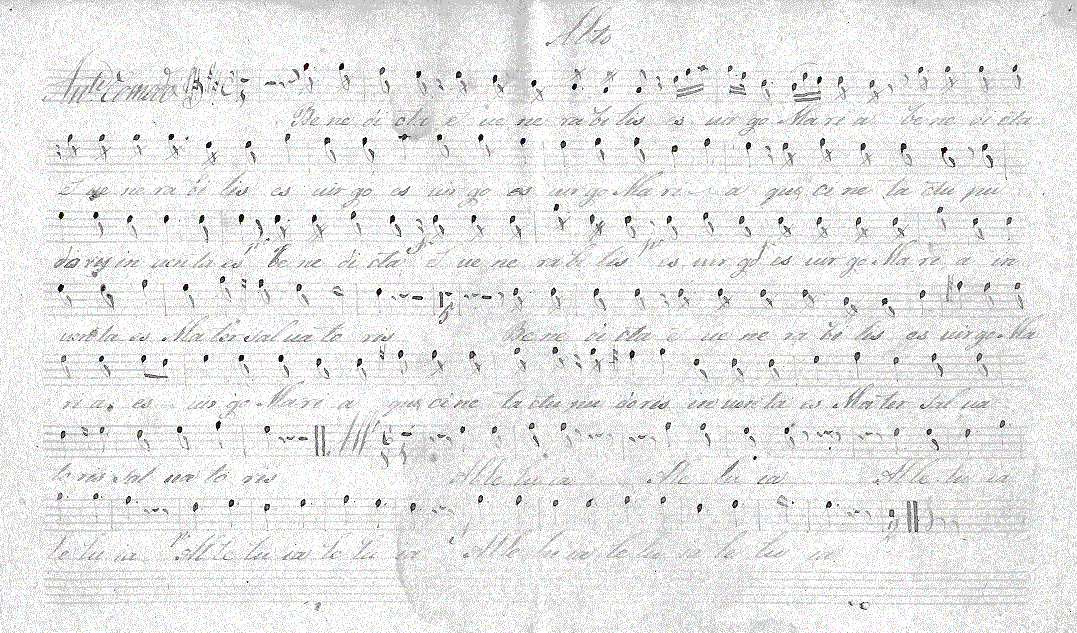 Alto
And.e Comodo
Be ne di cta e ve ne ra bi lis es vir go Ma ri a be ne di cta
e ve ne ra bi lis es vir go es vir go es vir go Ma ri a quæ ci ne ta ctu pu
doris in venta es be ne di cta e ve ne ra bi lis es vir go es vir go Ma ri a in
venta es Ma ter sal va to ris Be ne di cta e ve ne ra bi lis es vir go Ma
ri a es vir go Ma ri a quæ ci ne ta ctu pu doris in venta es Ma ter sal va
to ris sal va to ris Al le lu ia Al le lu ia Al le lu ia
le lu ia Al le lu ia le lu ia Al le lu ia le lu ia le lu ia